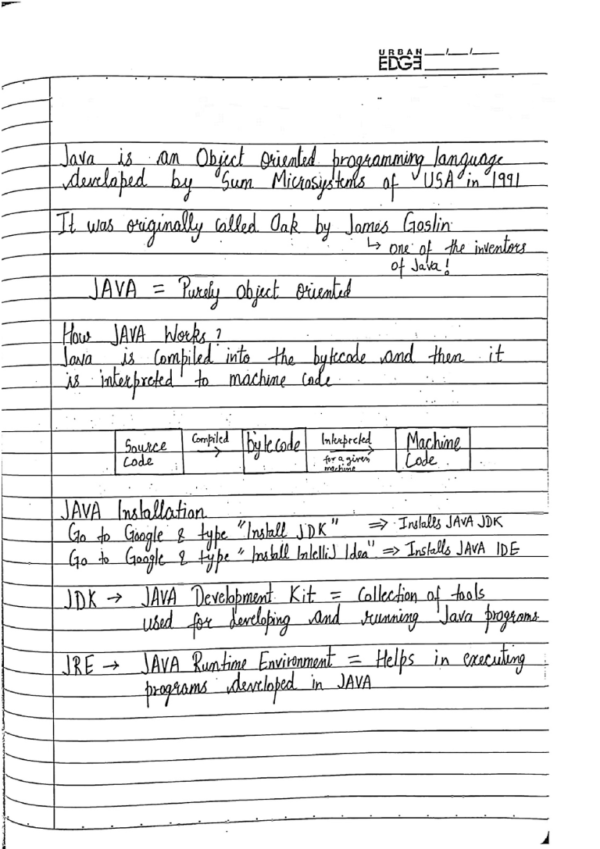 URBAN
EDGE
Java is an Object Oriented programming language
developed by Sum Microsystems of USA in 1991
It was originally called Oak by James Goslin
↳ one of the inventors
of Java!
JAVA = Purely Object Oriented
How JAVA Works?
Java is Compiled into the bytecode and then it
is interpreted to machine code
Source Code Compiled → bytecode Interpreted for a given machine → Machine Code
JAVA Installation
Go to Google & type "Install JDK" ⇒ Installs JAVA JDK
Go to Google & type "Install Intellij Idea" ⇒ Installs JAVA IDE
JDK → JAVA Development Kit = Collection of tools
used for developing and running Java programs
JRE → JAVA Runtime Environment = Helps in executing
programs developed in JAVA